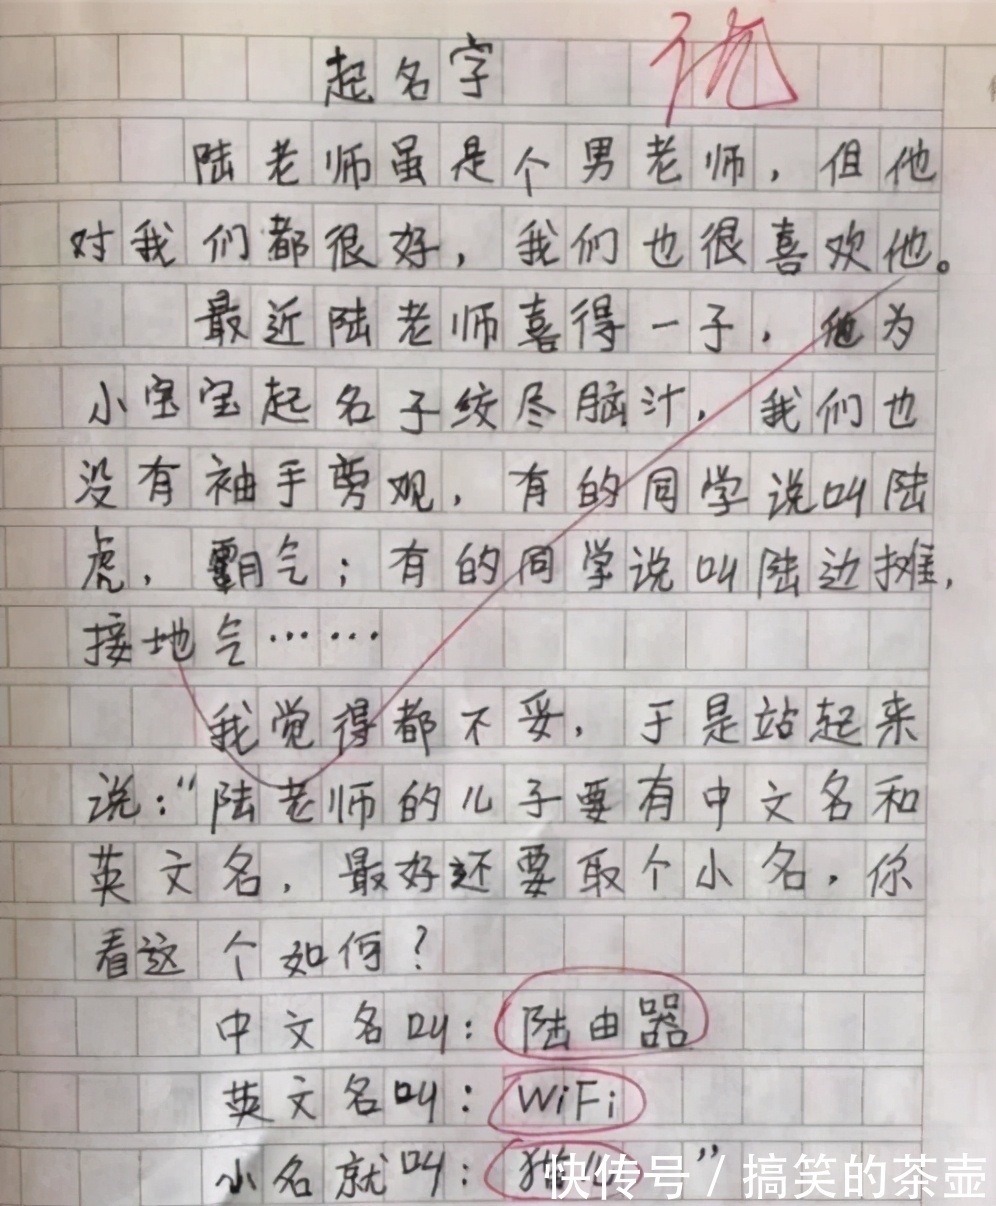 起名字
优
陆老师虽是个男老师，但他
对我们都很好，我们也很喜欢他。
最近陆老师喜得一子，他为
小宝宝起名子绞尽脑汁，我们也
没有袖手旁观，有的同学说叫陆
虎，霸气；有的同学说叫陆边摊，
接地气……
我觉得都不妥，于是站起来
说：“陆老师的儿子要有中文名和
英文名，最好还要取个小名，你
看这个如何？
中文名叫：陆由器
英文名叫：WiFi
小名就叫：猫”
快传号/搞笑的茶壶